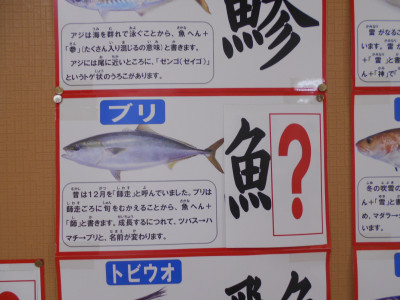 アジは海を群れで泳ぐことから、魚へん＋
「參」（たくさん入り混じるの意味）と書きます。
アジには尾に近いところに、「ゼンゴ（セイゴ）」
というトゲ状のうろこがあります。
鯵
ブリ
昔は12月を「師走」と呼んでいました。ブリは
師走ころに旬をむかえることから、魚へん＋
「師」と書きます。成長するにつれて、ツバス→ハ
マチ→ブリと、名前が変わります。
魚
？
トビウオ
雷がなる
います。雷
＋「雷」と書
＋「神」で
冬の吹雪の
「雪」と書
め、マダラ・